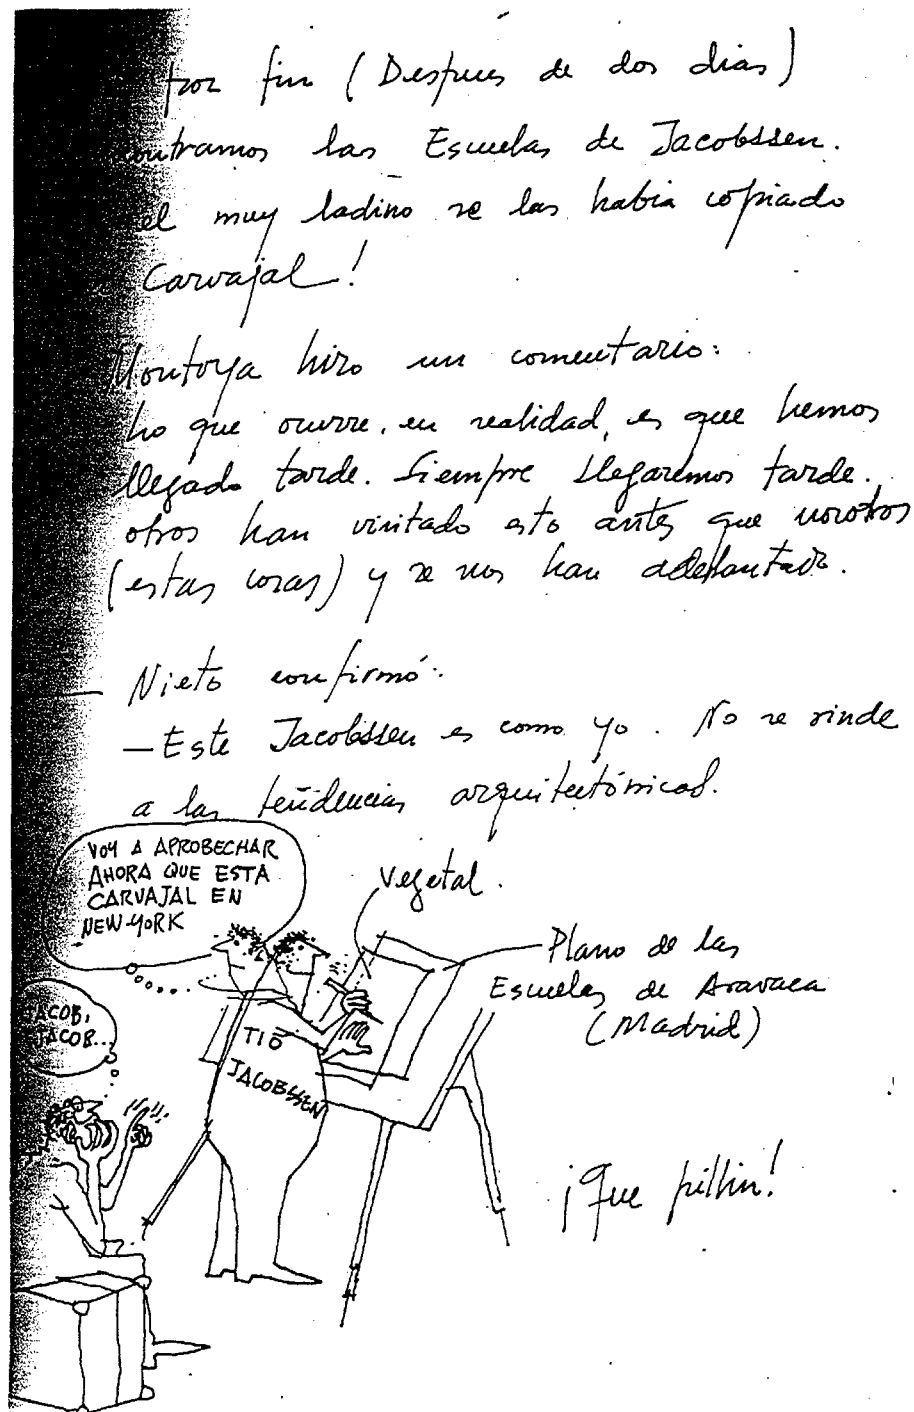 por fin (Despues de dos dias)
contramos las Escuelas de Jacobssen.
el muy ladino se las habia copiado
Carvajal!
Montoya hizo un comentario:
Lo que ocurre, en realidad, es que hemos
llegado tarde. Siempre llegaremos tarde.
otros han visitado esto antes que nosotros
(estas cosas) y se nos han adelantado.
Nieto confirmó:
—Este Jacobssen es como yo. No se rinde
a las tendencias arquitectónicas.
VOY A APROBECHAR
AHORA QUE ESTA
CARVAJAL EN
NEW-YORK
Vegetal.
Plano de las
Escuelas de Aravaca
(Madrid)
JACOB,
JACOB...
TIO
JACOBSSEN
¡Que pillin!